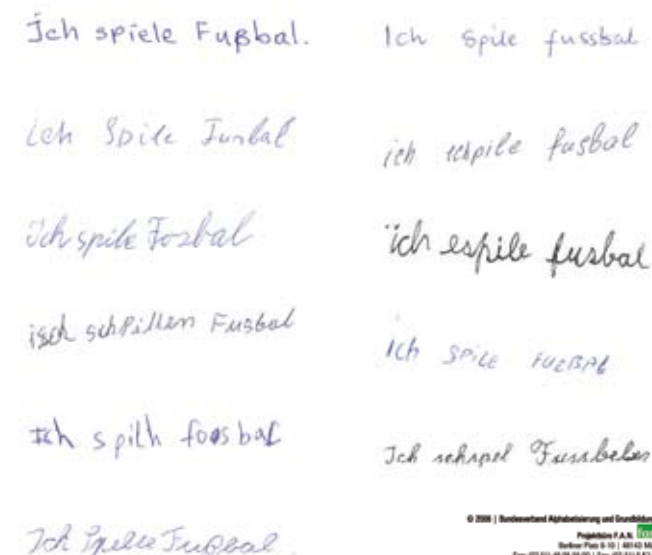 Ich spiele Fußbal.
ich Spile Fusbal
Ich spile Fosbal
isch schpillen Fusbal
Ich spilh foosbal
Ich Spiele Fusbal.
Ich Spile fussbal
ich schpile fusbal
ich espile fusbal
ich SPiLE FUZBAL
Ich schspel
© 2006 | Bundesverband Alphabetisierung und
Projektbüro F.A.N.